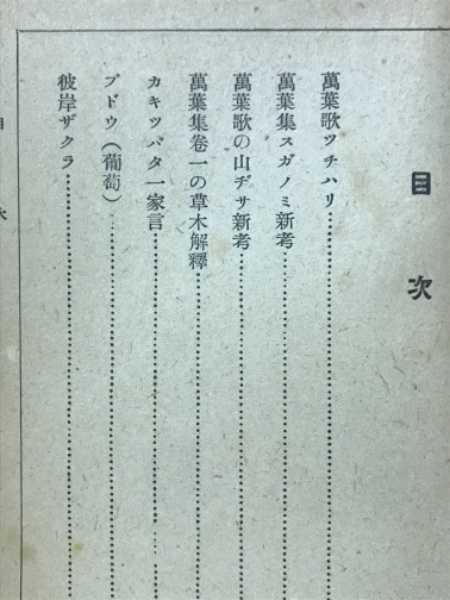 目次
萬葉歌ツチハリ
萬葉集スガノミ新考
萬葉歌の山ヂサ新考
萬葉集卷一の草木解釋
カキツバタ一家言
ブドウ（葡萄）
彼岸ザクラ
目次